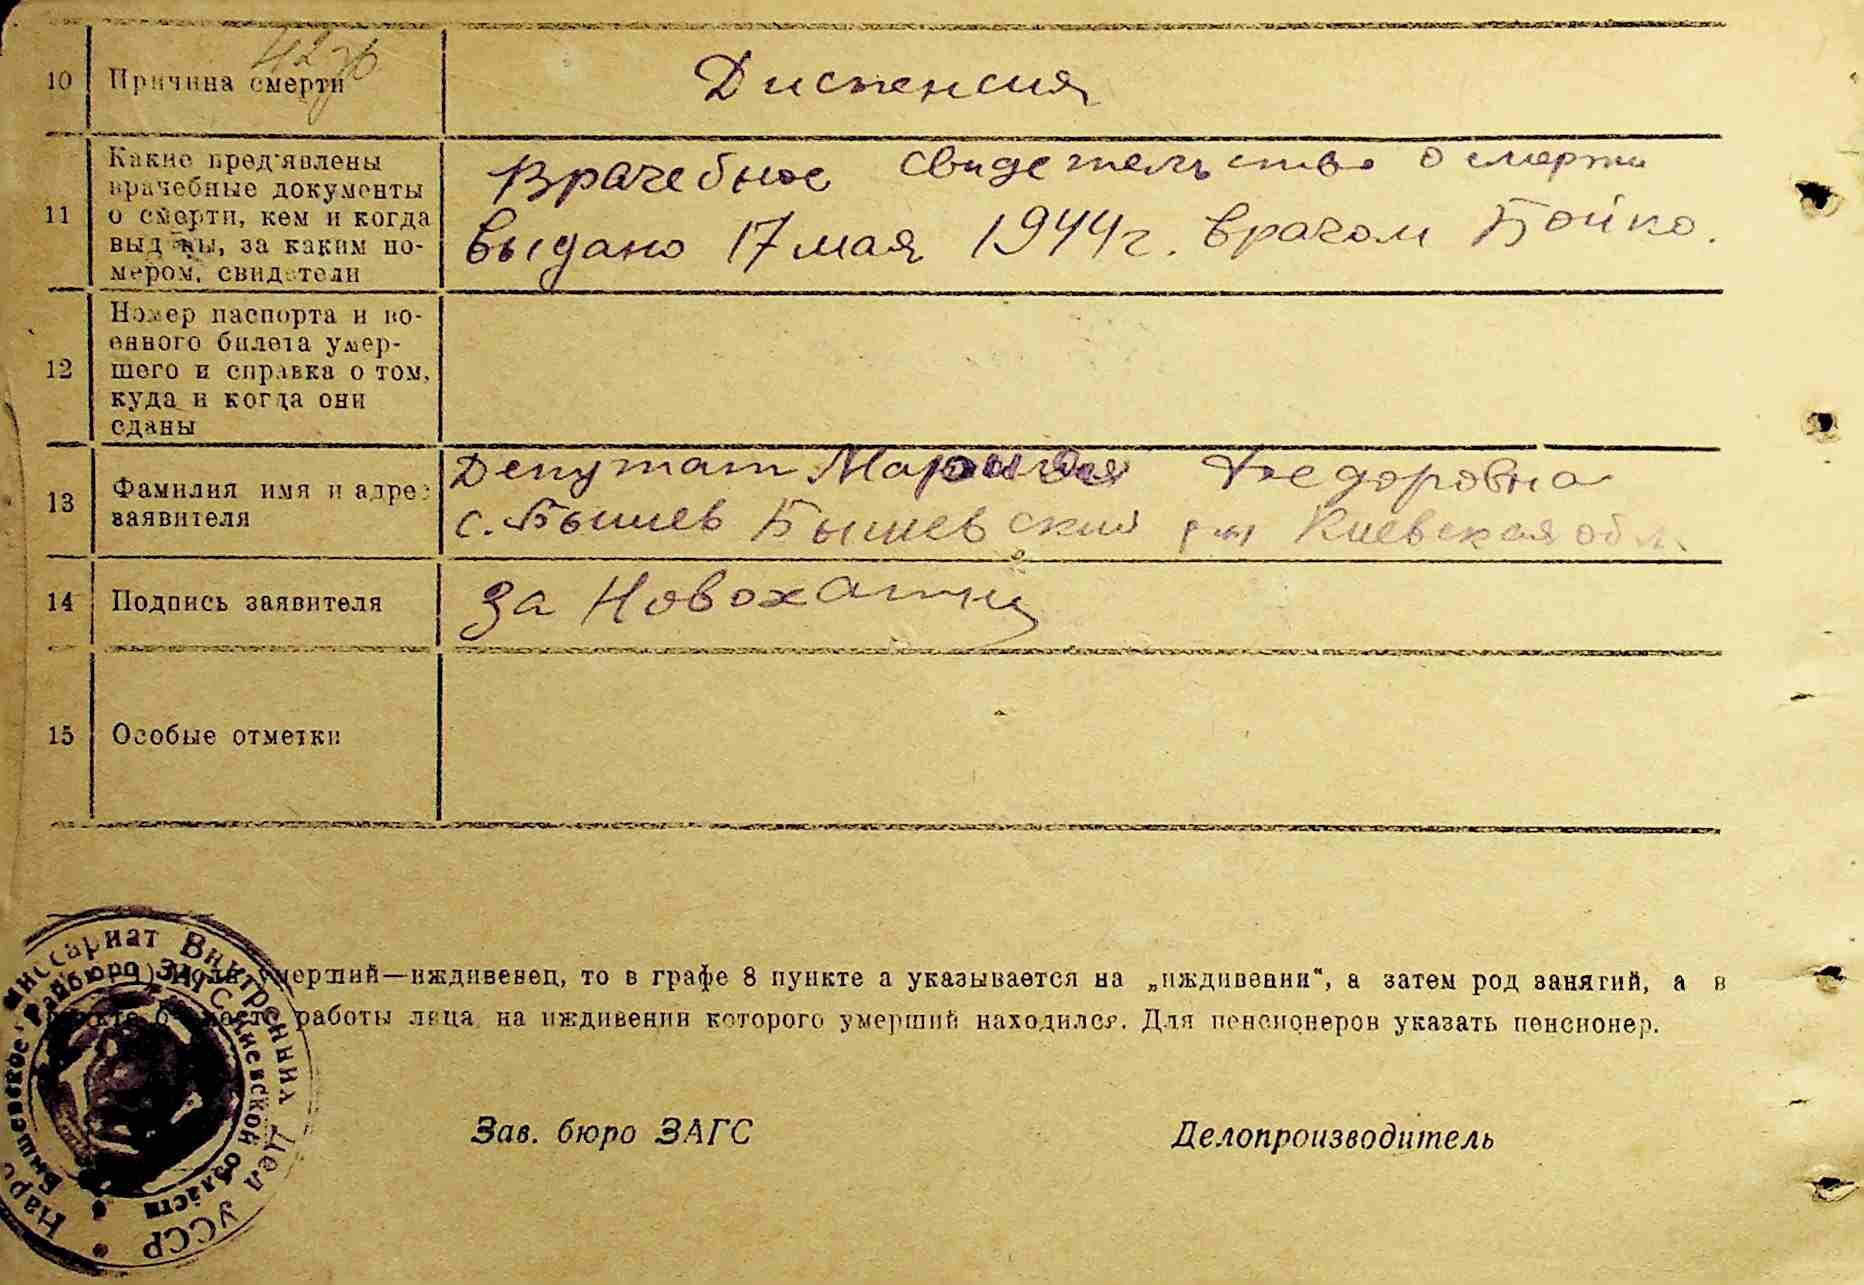 10 Причина смерти Диспенсия
11 Какие пред'явлены
врачебные документы
о смерти, кем и когда
выданы, за каким но-
мером, свидетели
Врачебное свидетельство о смерти
выдано 17 мая 1944 г. врачом Бойко.
12 Номер паспорта и во-
енного билета умер-
шего и справка о том,
куда и когда они
сданы
13 Фамилия имя и адрес
заявителя
Депутат Федоровна
с. Бышев Бышевский р-н Киевская обл.
14 Подпись заявителя за
15 Особые отметки
умерший—иждивенец, то в графе 8 пункте а указывается на „иждивении“, а затем род занятий, а в
работы лица, на иждивении которого умерший находился. Для пенсионеров указать пенсионер.
Зав. бюро ЗАГС Делопроизводитель
Внутренних Дел УССР
Бышевское Райбюро ЗАГС Киевской области